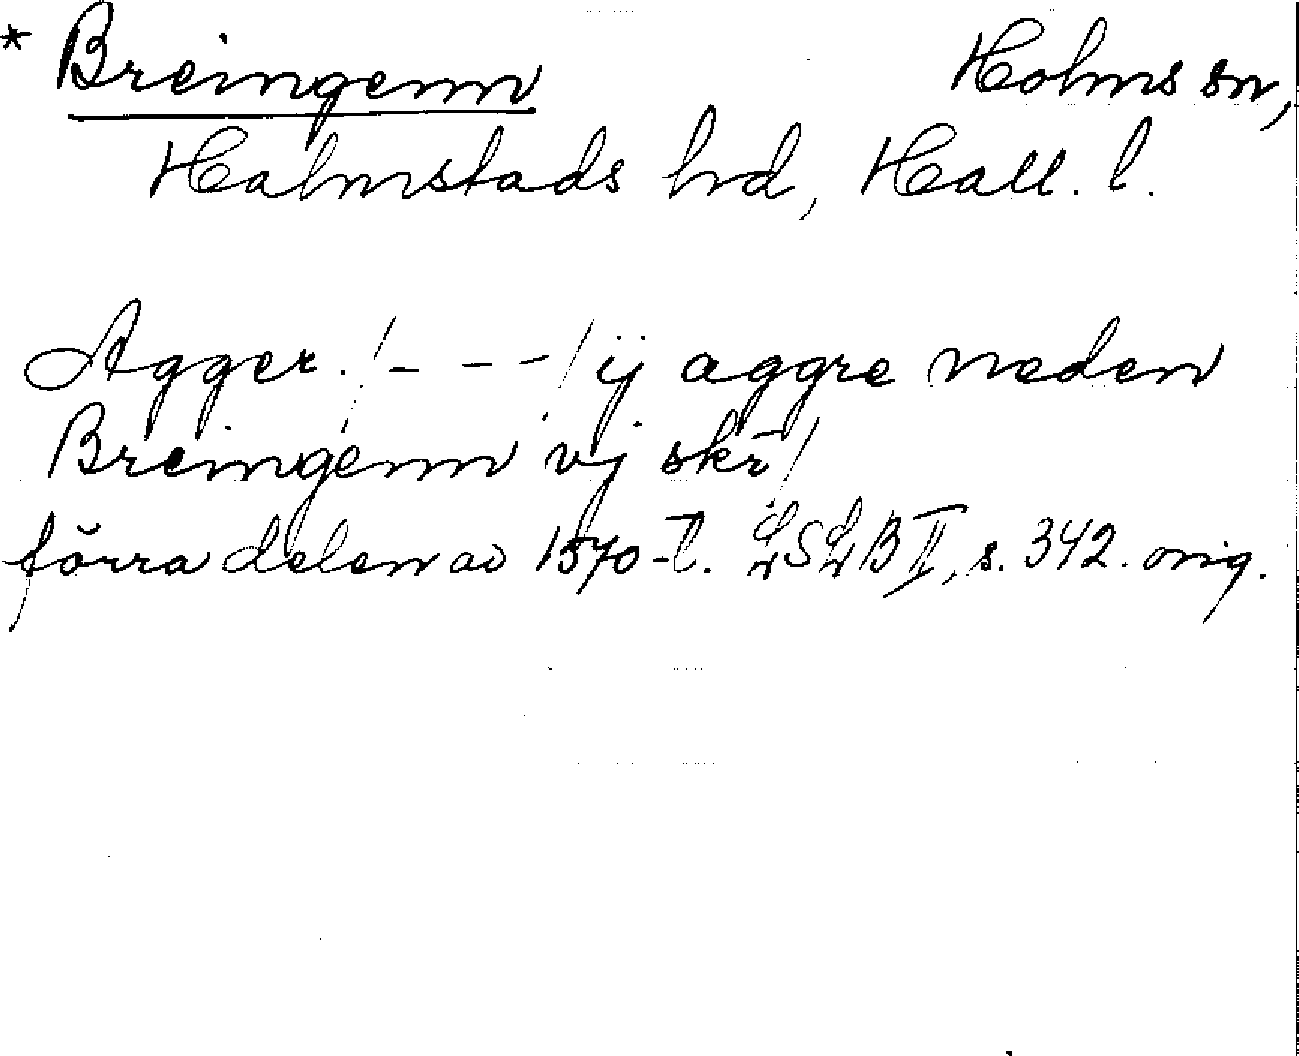 * Breingenn Holms sn,
Halmstads hrd, Hall. l.
Agger. /- - -/ ij aggre neden
Breingenn vj skr̄/
förra delen av 1570-t. LSLB II, s. 342. orig.